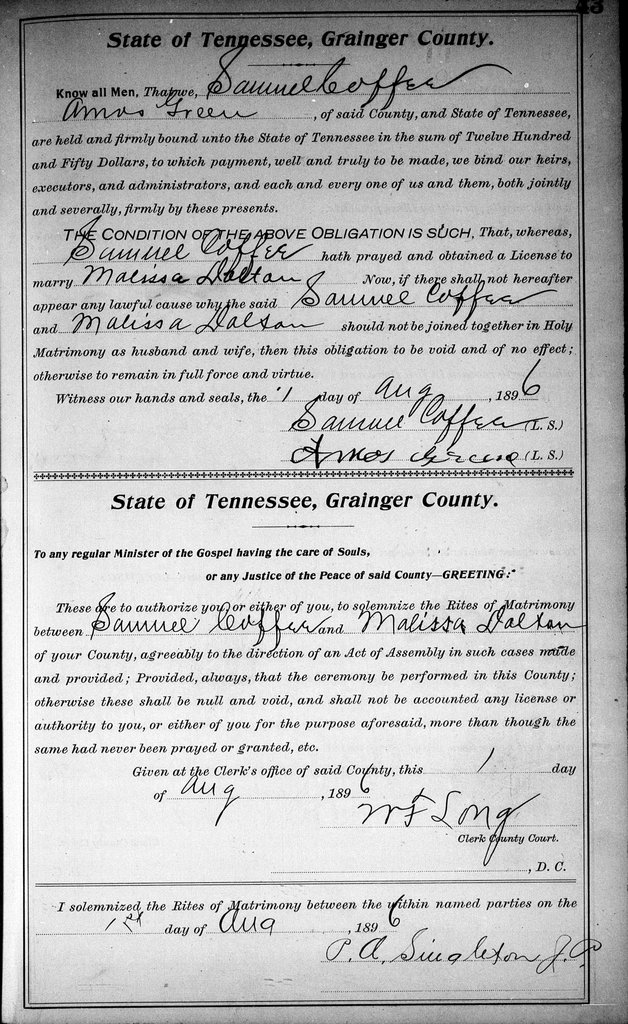 43
State of Tennessee, Grainger County.
Know all Men, That we, Samuel Coffee
Amos Green , of said County, and State of Tennessee,
are held and firmly bound unto the State of Tennessee in the sum of Twelve Hundred
and Fifty Dollars, to which payment, well and truly to be made, we bind our heirs,
executors, and administrators, and each and every one of us and them, both jointly
and severally, firmly by these presents.
THE CONDITION OF THE ABOVE OBLIGATION IS SUCH, That, whereas,
Samuel Coffee hath prayed and obtained a License to
marry Malissa Dalton Now, if there shall not hereafter
appear any lawful cause why the said Samuel Coffee
and Malissa Dalton should not be joined together in Holy
Matrimony as husband and wife, then this obligation to be void and of no effect;
otherwise to remain in full force and virtue.
Witness our hands and seals, the 1 day of Aug , 1896
Samuel Coffee (L. S.)
Amos Green (L. S.)
State of Tennessee, Grainger County.
To any regular Minister of the Gospel having the care of Souls,
or any Justice of the Peace of said County—GREETING:
These are to authorize you, or either of you, to solemnize the Rites of Matrimony
between Samuel Coffee and Malissa Dalton
of your County, agreeably to the direction of an Act of Assembly in such cases made
and provided; Provided, always, that the ceremony be performed in this County;
otherwise these shall be null and void, and shall not be accounted any license or
authority to you, or either of you for the purpose aforesaid, more than though the
same had never been prayed or granted, etc.
Given at the Clerk's office of said County, this 1 day
of Aug , 1896
W F Long
Clerk County Court.
, D. C.
I solemnized the Rites of Matrimony between the within named parties on the
1st day of Aug , 1896
P. A. Singleton J. P.